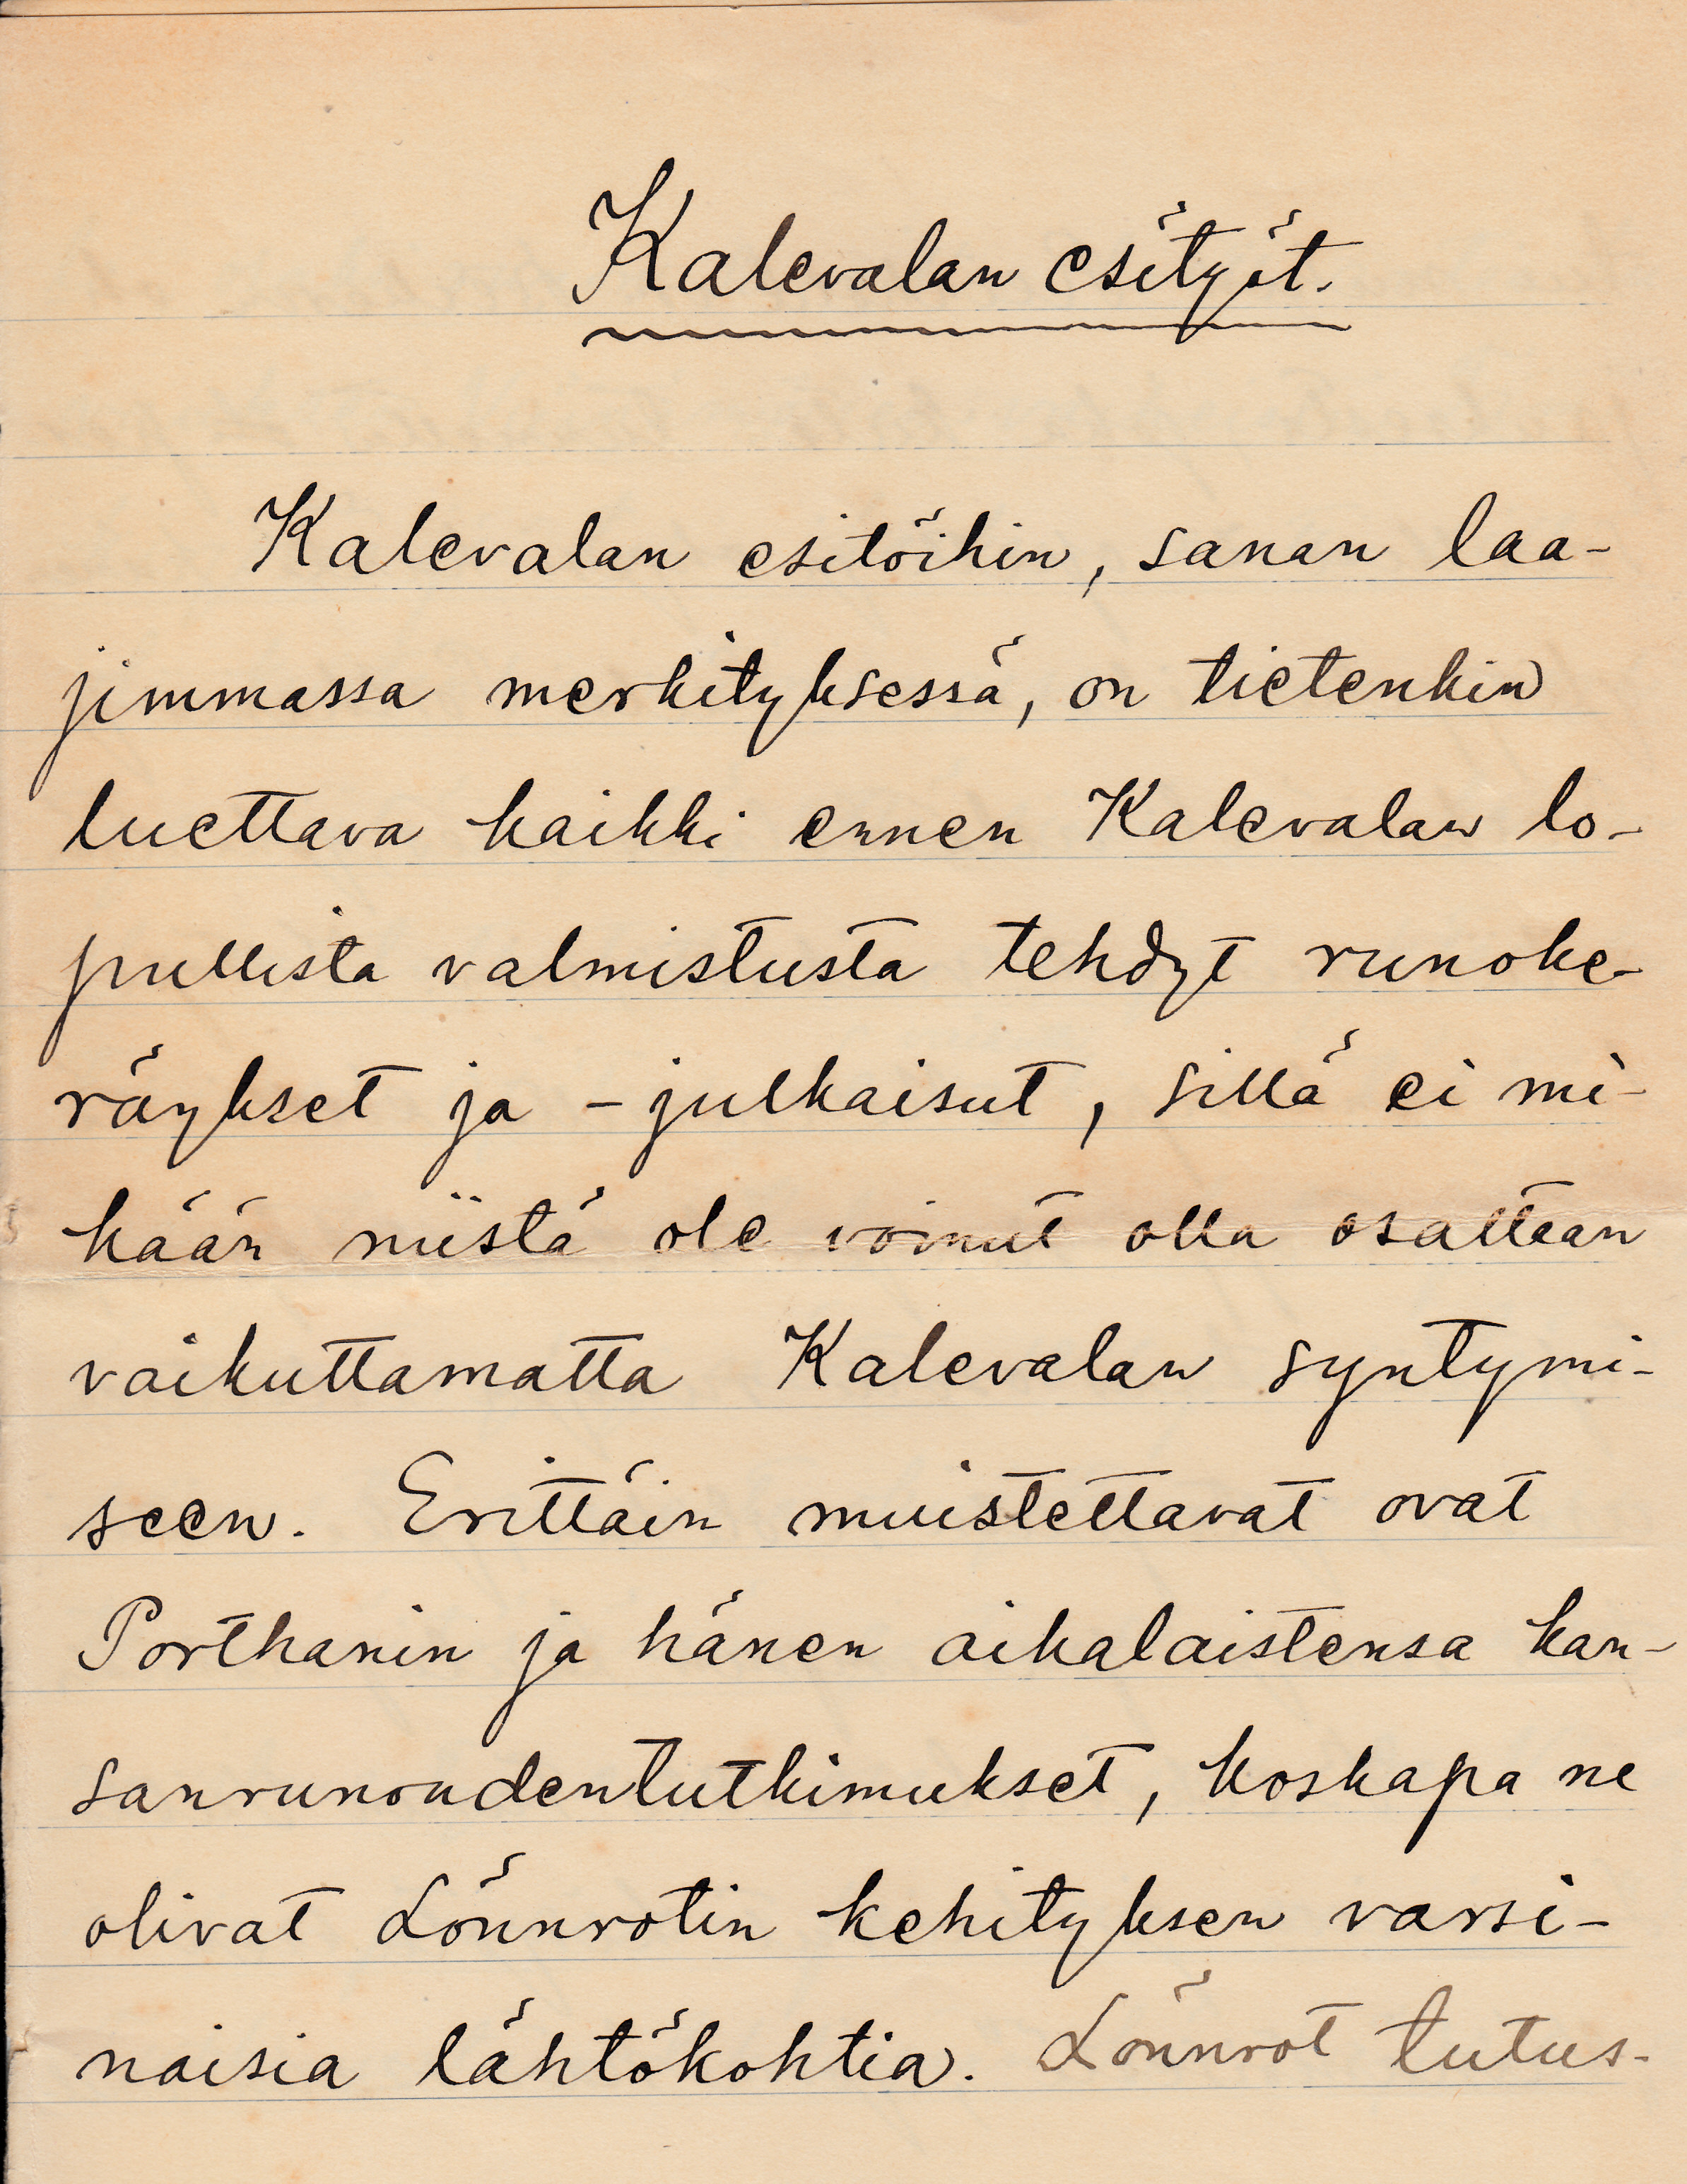 Kalevalan esityöt.
Kalevalan esitöihin, sanan laa-
jimmassa merkityksessä, on tietenkin
luettava kaikki ennen Kalevalan lo-
pullista valmistusta tehdyt runoke-
räykset ja -julkaisut, sillä ei mi-
kään niistä ole voinut olla osaltaan
vaikuttamatta Kalevalan syntymi-
seen. Erittäin muistettavat ovat
Porthanin ja hänen aikalaistensa kan-
sanrunoudentutkimukset, koskapa ne
olivat Lönnrotin kehityksen varsi-
naisia lähtökohtia. Lönnrot tutus-